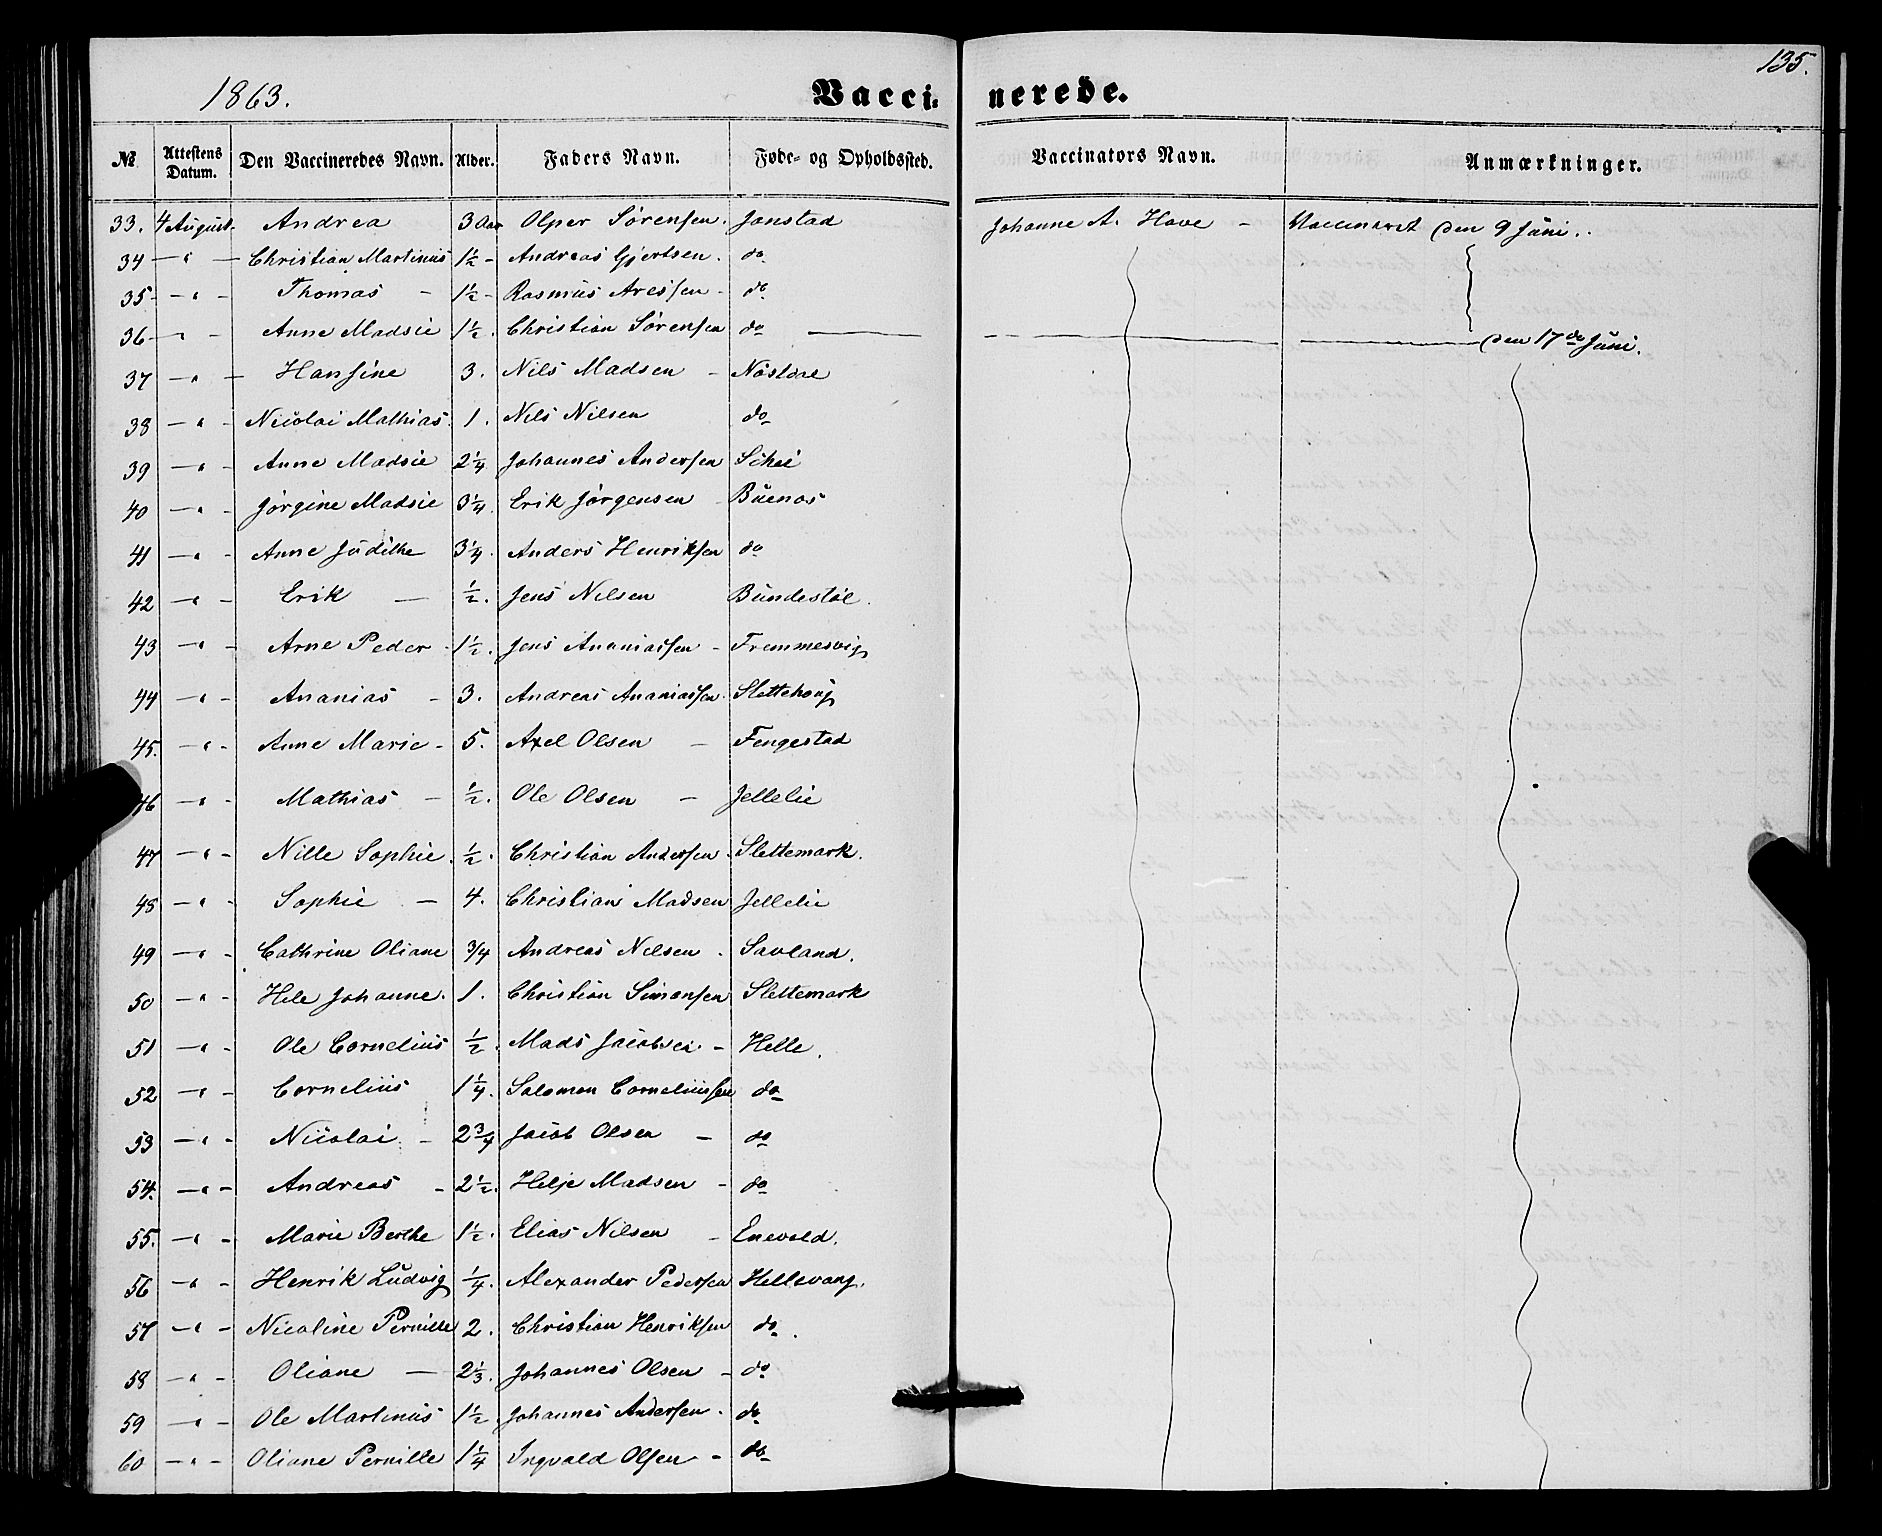 135.
1863. Vacci- nerede.
№ Attestens Datum. Den Vaccineredes Navn. Alder. Faders Navn. Føde- og Opholdssted. Vaccinators Navn. Anmærkninger.
33. 4 August. Andrea 3 Aar Olper Sørensen. Jonstad Johanne A. Have - Vaccineret den 9 Juni.
34 — " — Christian Martinus 1½ - Andreas Gjertsen. do
35 — " - Thomas - 1½ - Rasmus Aresen - do
36 — " - Anne Madsie 1½. Christian Sørensen do den 17de Juni.
37 — " — Hansine 3. Nils Madsen - Nøstdal
38 — " - Nicolai Mathias 1. Nils Nilsen do
39 — " - Anne Madsie 2¼ Johannes Andersen Schei
40 — " - Jørgine Madsie 3¼ Erik Jørgensen - Buenas
41 — " - Anne Judithe 3¼ Anders Henriksen do
42 — " - Erik — ½. Jens Nilsen Bundestøl.
43 — " - Arne Peder 1½. Jens Ananiassen - Fremmesvig
44 — " - Ananias - 3. Andreas Ananiassen. Slettehoug
45. — " - Anne Marie - 5. Axel Olsen — Fengestad
46 — " - Mathias - ½. Ole Olsen — Jellelie
47 — " - Nille Sophie. ½. Christian Andersen. Slettemark.
48 — " - Sophie — 4. Christian Madsen Jellelie
49 — " - Cathrine Oliane ¾ Andreas Nilsen. Savland.
50 — " - Hele Johanne. 1. Christian Simonsen Slettemark
51 — " - Ole Cornelius ½. Mads Jacobsen - Helle.
52 — " - Cornelius 1¼. Salomon Corneliussen do
53 — " - Nicolai - 2¾ Jacob Olsen — do
54. — " - Andreas - 2½. Helje Madsen - do
55. — " - Marie Berthe 1½. Elias Nilsen - Enevold.
56 — " - Henrik Ludvig ¼. Alexander Pedersen Hellevang.
57 — " - Nicoline Pernille 2. Christian Henriksen do.
58 — " - Oliane — 2⅓. Johannes Olsen - do
59 — " - Ole Martinus 1½. Johannes Andersen. do
60 — " - Oliane Pernille 1¼ Ingvald Olsen - do